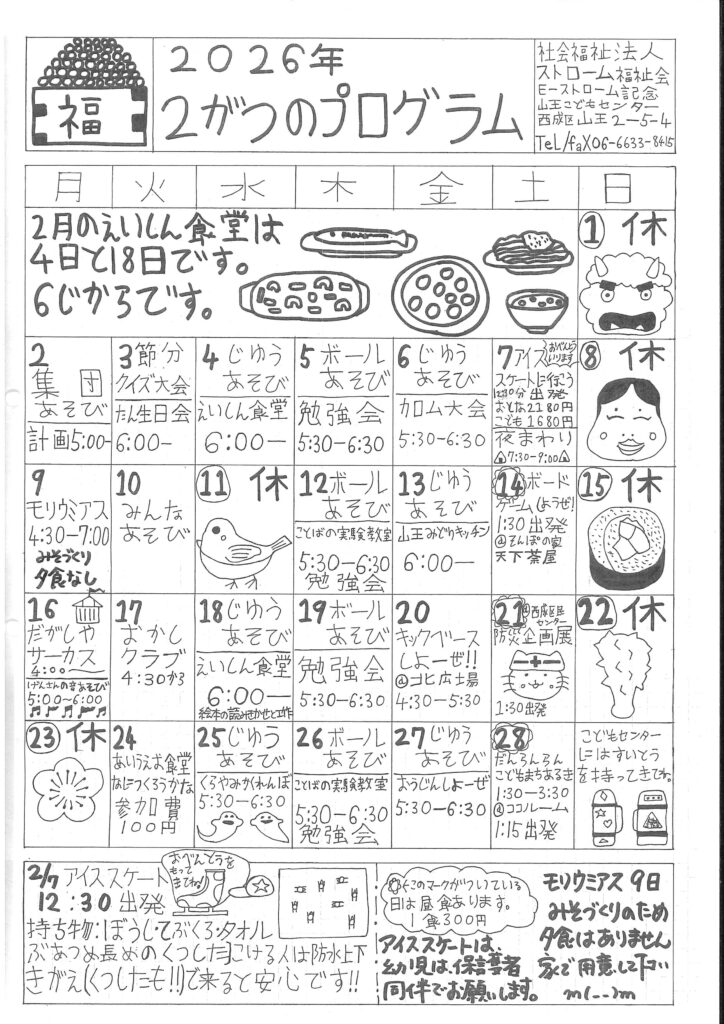 福
2026年
2がつのプログラム
社会福祉法人
ストローム福祉会
E-ストローム記念
山王こどもセンター
西成区山王2-5-4
TeL/faX06-6633-8415
月 火 水 木 金 土 日
2月のえいしん食堂は
4日と18日です。
6じからです。
1 休
2
集団
あそび
計画5:00-
3 節分
クイズ大会
たん生日会
6:00-
4 じゆう
あそび
えいしん食堂
6:00-
5 ボール
あそび
勉強会
5:30-6:30
6 じゆう
あそび
カロム大会
5:30-6:30
7 アイス
おべんとう
いります
スケートに行こう
12:30分 出発
おとな2180円
こども1680円
夜まわり
7:30-9:00
8 休
9
モリウミアス
4:30-7:00
みそづくり
夕食なし
10
みんな
あそび
11 休
12 ボール
あそび
ことばの実験教室
5:30-6:30
勉強会
13 じゆう
あそび
山王みどりキッチン
6:00-
14 ボード
ゲームしようぜ!
1:30出発
@そんぽの家
天下茶屋
15 休
16
だがしや
サーカス
4:00~
げんさんの音あそび
5:00~6:00
17
おかし
クラブ
4:30から
18 じゆう
あそび
えいしん食堂
6:00-
絵本の読みきかせと工作
19 ボール
あそび
勉強会
5:30-6:30
20
キックベース
しよーぜ!!
@コヒ広場
4:30-5:30
21
@西成区民
センター
防災企画展
1:30出発
22 休
23 休
24
あいうえお食堂
なにつくろうかな
参加費
100円
25 じゆう
あそび
くらやみかくれんぼ
5:30-6:30
26 ボール
あそび
ことばの実験教室
5:30-6:30
勉強会
27 じゆう
あそび
おうじんしよーぜ
5:30-6:30
28
だんらんらん
こどもまちあるき
1:30-3:30
@ココルーム
1:15出発
こどもセンター
にはすいとう
を持ってきてね。
2/7 アイススケート
12:30出発
おべんとうを
もって
きてね!
持ち物:ぼうし・てぶくろ・タオル
ぶあつめ長めのくつした こける人は防水上下
きがえ(くつしたも!!)で来ると安心です!!
←このマークがついている
日は昼食あります。
1食300円
アイススケートは、
幼児は、保護者
同伴でお願いします。
モリウミアス 9日
みそづくりのため
夕食はありません
家で用意して下い
m(__)m